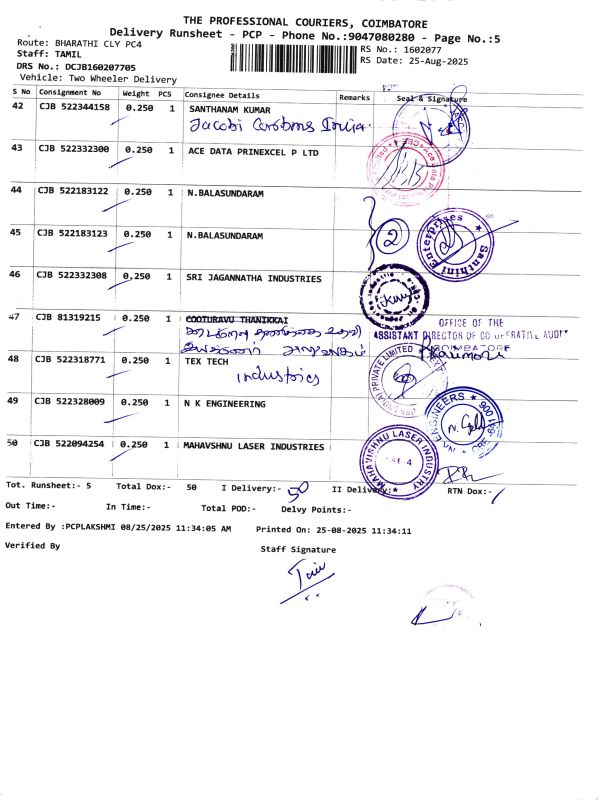 THE PROFESSIONAL COURIERS, COIMBATORE
Delivery Runsheet - PCP - Phone No.:9047080280 - Page No.:5
Route: BHARATHI CLY PC4
RS No.: 1602077
Staff: TAMIL
RS Date: 25-Aug-2025
DRS No.: DCJB160207705
Vehicle: Two Wheeler Delivery
S No Consignment No Weight PCS Consignee Details Remarks Seal & Signature
42 CJB 522344158 0.250 1 SANTHANAM KUMAR
Jacobi Carbons India
43 CJB 522332300 0.250 1 ACE DATA PRINEXCEL P LTD
44 CJB 522183122 0.250 1 N.BALASUNDARAM
2
45 CJB 522183123 0.250 1 N.BALASUNDARAM
Santhini Enterprises
46 CJB 522332308 0.250 1 SRI JAGANNATHA INDUSTRIES
47 CJB 81319215 0.250 1 COOTURAVU THANIKKAI
OFFICE OF THE
ASSISTANT DIRECTOR OF CO OPERATIVE AUDIT
COIMBATORE
48 CJB 522318771 0.250 1 TEX TECH
Industries
PRIVATE LIMITED
49 CJB 522328009 0.250 1 N K ENGINEERING
ENGINEERS
50 CJB 522094254 0.250 1 MAHAVSHNU LASER INDUSTRIES
MAHAVISHNU LASER INDUSTRY
Tot. Runsheet:- 5 Total Dox:- 50 I Delivery:- 50 II Delivery:- RTN Dox:-
Out Time:- In Time:- Total POD:- Delvy Points:-
Entered By :PCPLAKSHMI 08/25/2025 11:34:05 AM Printed On: 25-08-2025 11:34:11
Verified By Staff Signature